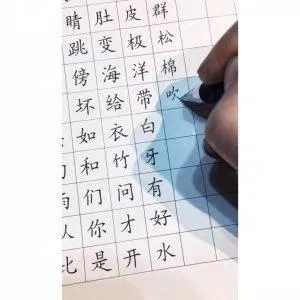 睛肚皮群
跳变极松
傍海洋棉
坏给带吹
如衣白
和竹牙
们问有
你才好
是开水